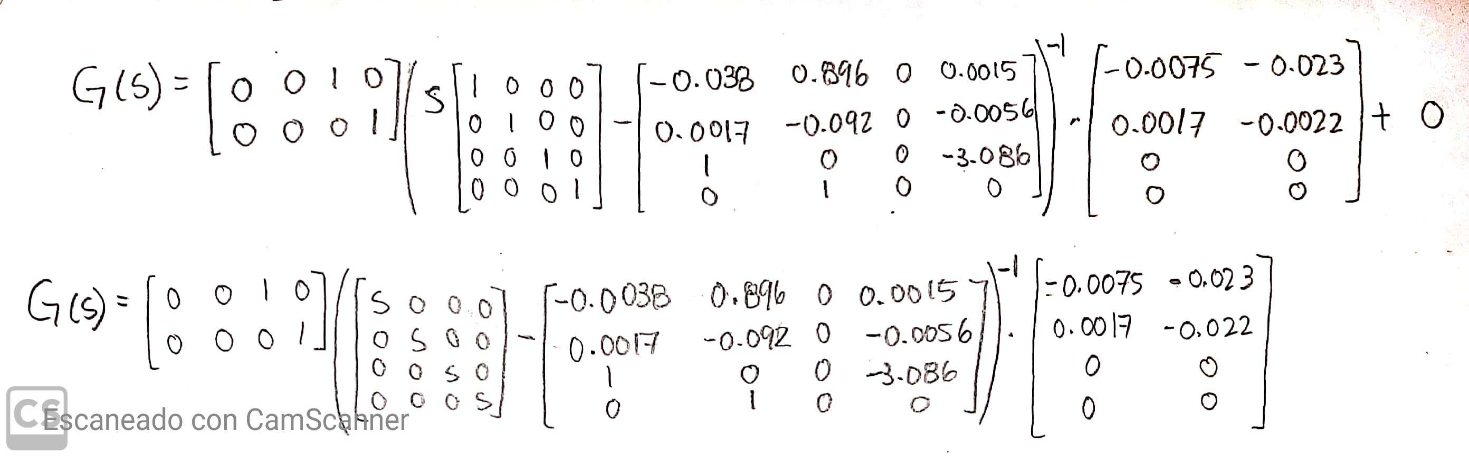 G(s) = [0 0 1 0; 0 0 0 1] (s [1 0 0 0; 0 1 0 0; 0 0 1 0; 0 0 0 1] - [-0.038 0.896 0 0.0015; 0.0017 -0.092 0 -0.0056; 1 0 0 -3.086; 0 1 0 0])^-1 · [-0.0075 -0.023; 0.0017 -0.0022; 0 0; 0 0] + 0
G(s) = [0 0 1 0; 0 0 0 1] ([s 0 0 0; 0 s 0 0; 0 0 s 0; 0 0 0 s] - [-0.0038 0.896 0 0.0015; 0.0017 -0.092 0 -0.0056; 1 0 0 -3.086; 0 1 0 0])^-1 · [-0.0075 -0.023; 0.0017 -0.022; 0 0; 0 0]
CS Escaneado con CamScanner